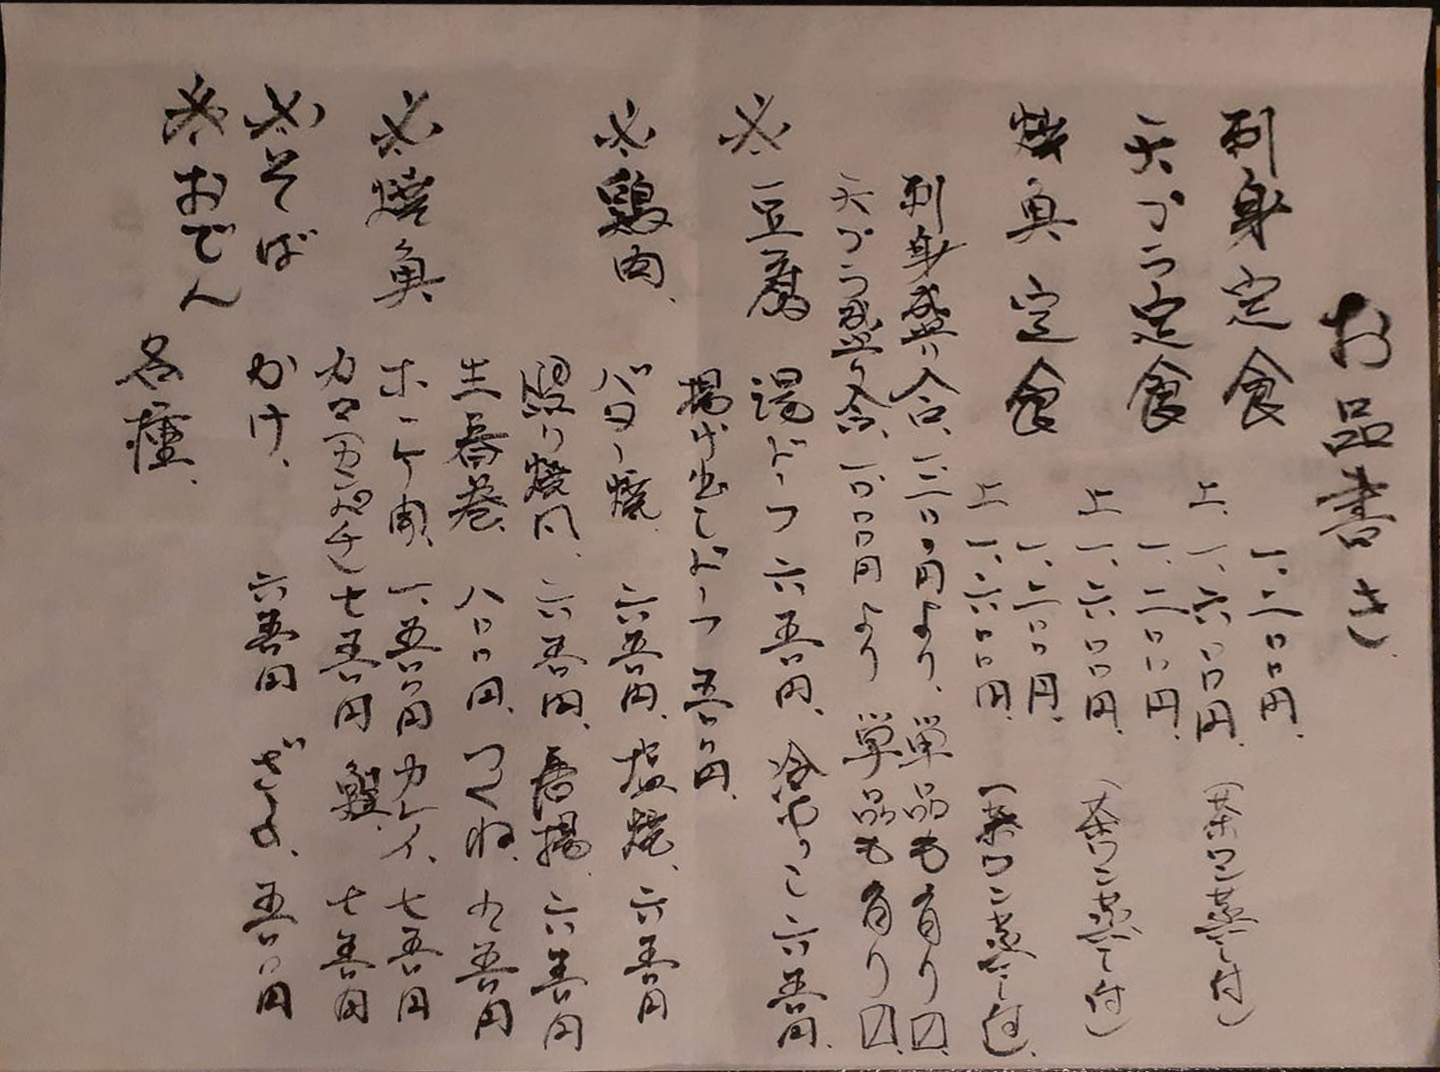 お品書き
刺身定食 一、二〇〇円、
上 一、六〇〇円、(茶ワン蒸し付)
天プラ定食 一、二〇〇円、
上 一、六〇〇円、(茶ワン蒸し付)
焼魚定食 一、二〇〇円、
上 一、六〇〇円、(茶ワン蒸し付)、
刺身盛り合、一、三〇〇円より、単品も有り〼、
天プラ盛り合、一、〇〇〇円より 単品も有り〼、
※豆腐 湯ドーフ 六五〇円、冷やっこ 六五〇円、
揚げ出しドーフ 五〇〇円、
※鶏肉、バター焼 六五〇円、塩焼、六五〇円
照り焼、六五〇円、唐揚、六五〇円
生春巻、八〇〇円、つくね、九五〇円
※焼魚 ホッケ開、一、五〇〇円 カレイ、七五〇円
カマ(カンパチ) 七五〇円 七五〇円
※そば かけ、六五〇円 ざる、五〇〇円
※おでん 各種、